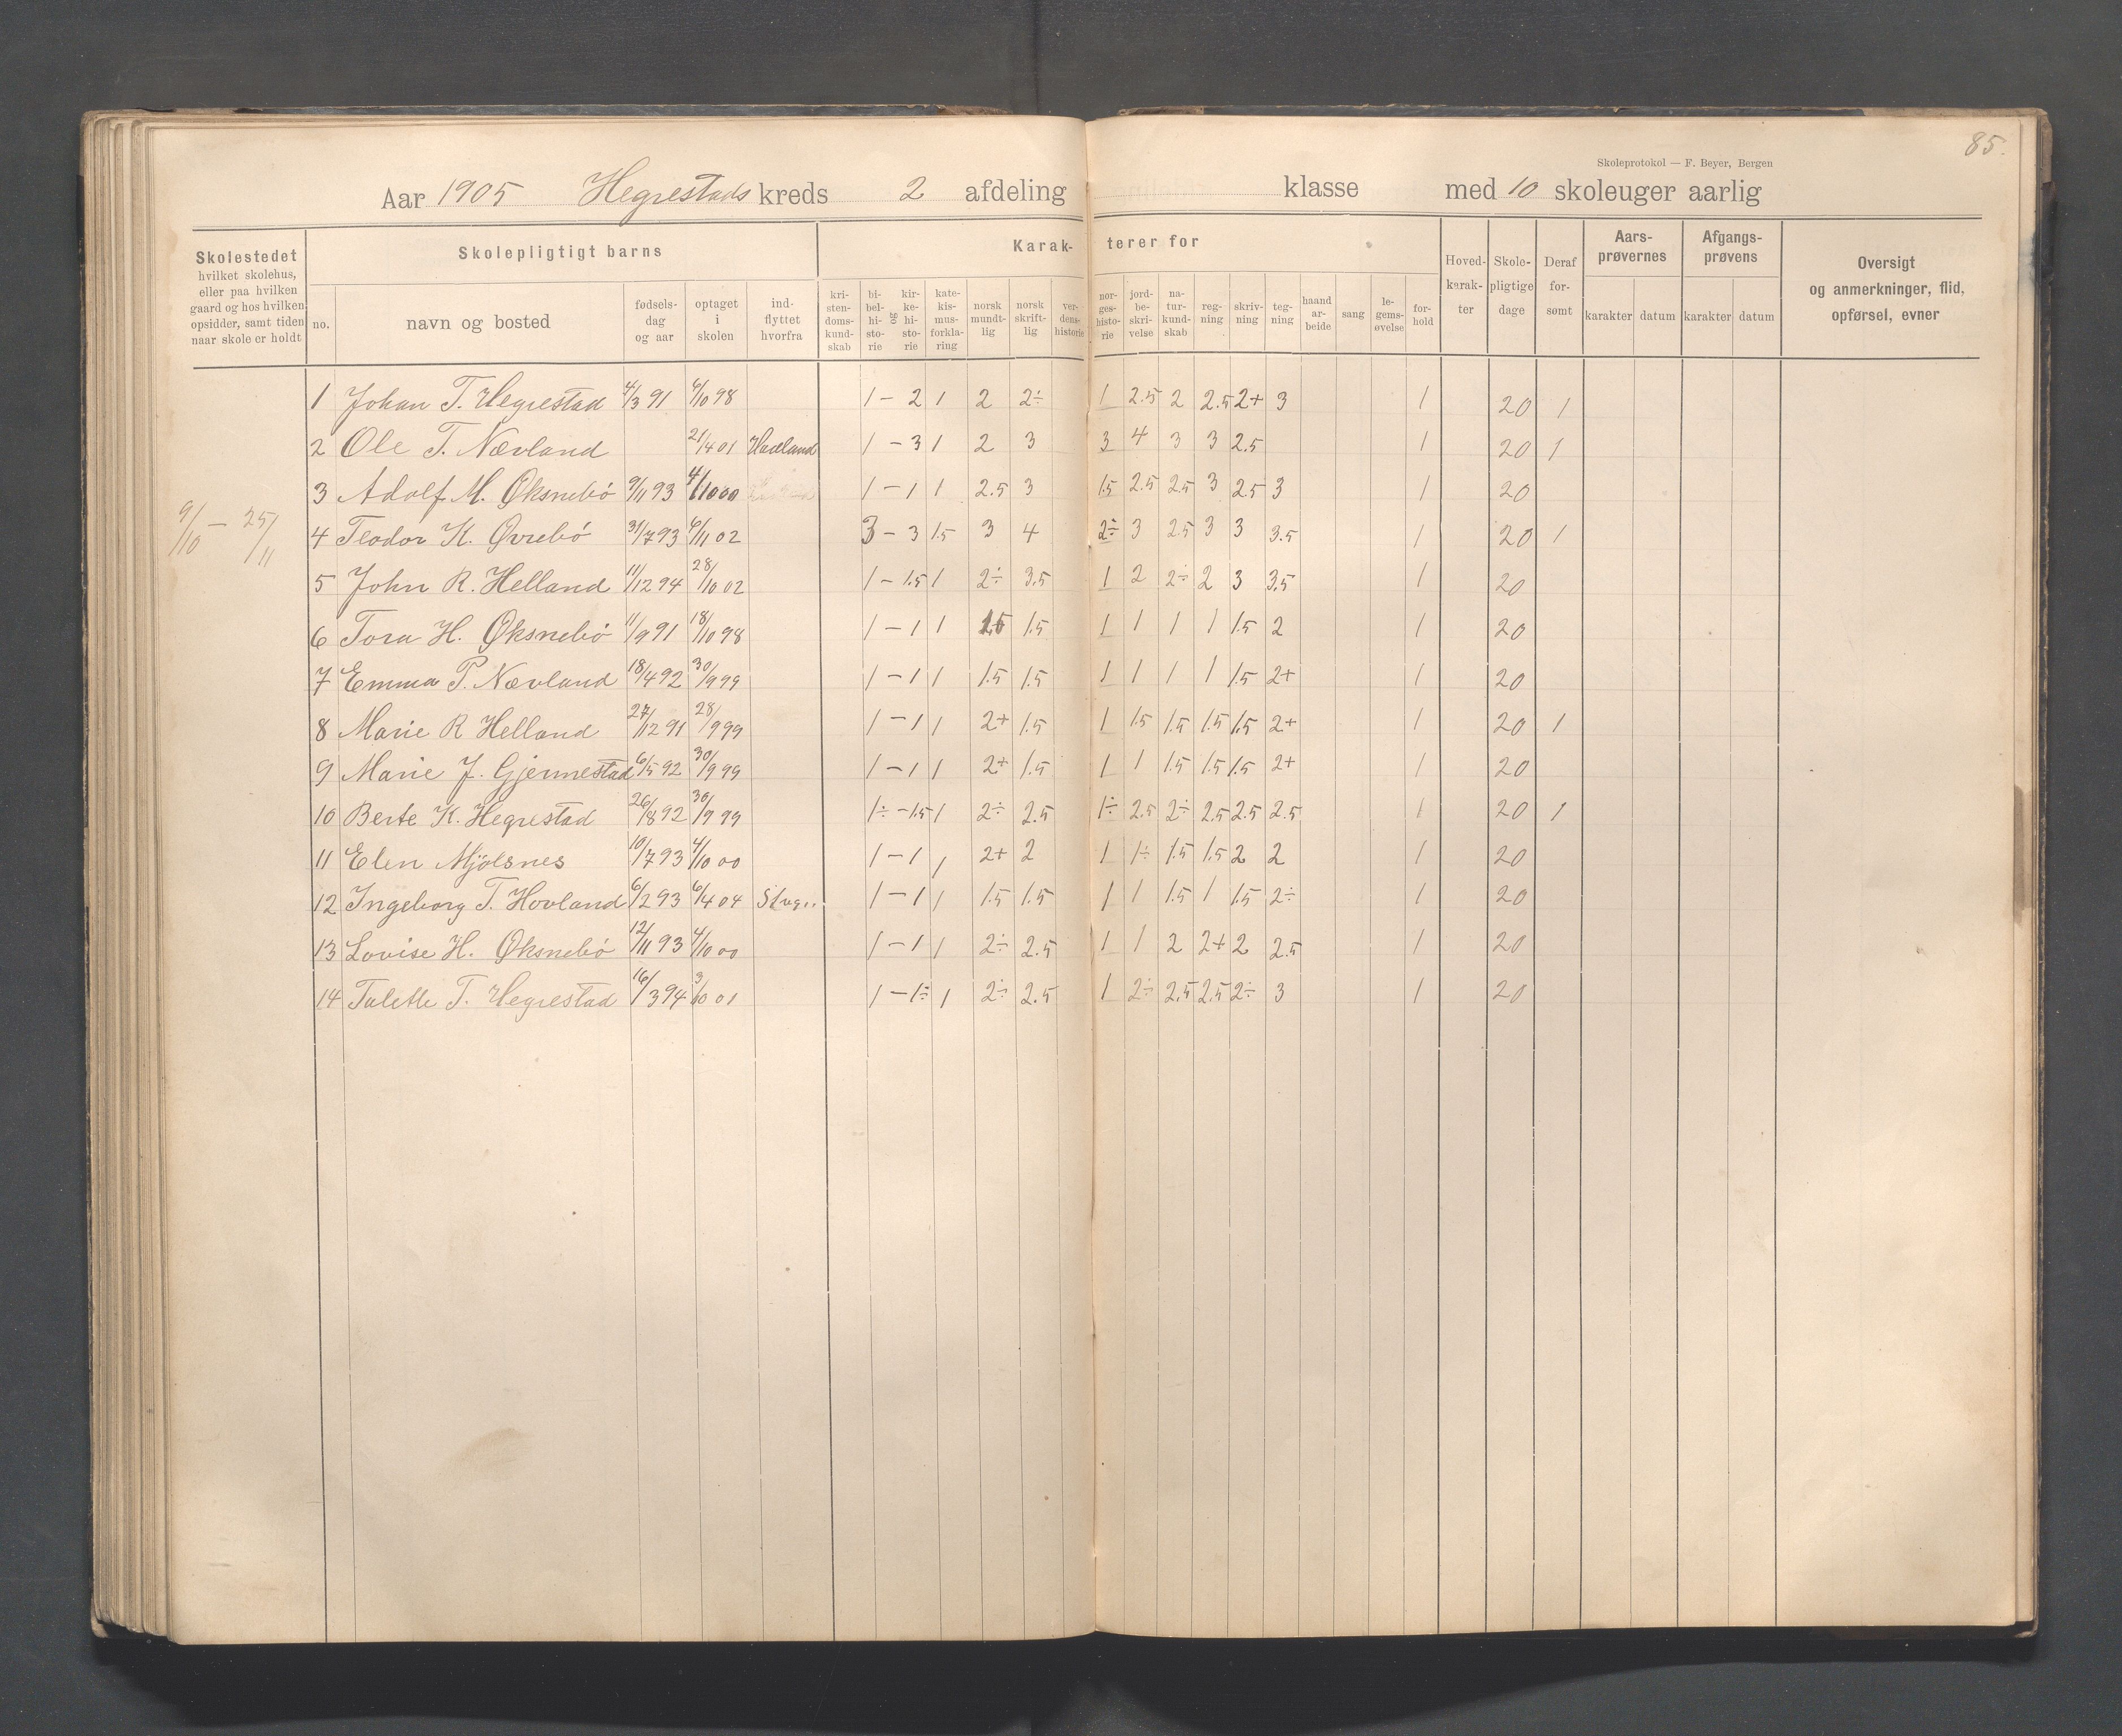 85.
Skoleprotokol — F. Beyer, Bergen
Aar 1905 Hegrestads kreds 2 afdeling klasse med 10 skoleuger aarlig
Skolestedet hvilket skolehus, eller paa hvilken gaard og hos hvilken opsidder, samt tiden naar skole er holdt
Skolepligtigt barns
Karak- terer for
no. navn og bosted fødsels- dag og aar optaget i skolen ind- flyttet hvorfra kri- sten- doms- kund- skab bi- bel- hi- sto- rie og kir- ke- hi- sto- rie kate- kis- mus- forkla- ring norsk mundt- lig norsk skrift- lig ver- dens- historie nor- ges- histo- rie jord- be- skri- velse na- tur- kund- skab reg- ning skriv- ning teg- ning haand ar- beide sang le- gems- øvelse for- hold
Hoved- karak- ter Skole- pligtige dage Deraf for- sømt Aars- prøvernes karakter datum Afgangs- prøvens karakter datum Oversigt og anmerkninger, flid, opførsel, evner
1 Johan T. Hegrestad 4/3 91 6/10 98 1 - 2 1 2 2÷ 1 2.5 2 2.5 2+ 3 1 20 1
2 Ole T. Nævland 21/4 01 Haaland 1 - 3 1 2 3 3 4 3 3 2.5 1 20 1
3 Adolf M. Øksnebø 9/11 93 4/10 00 1 - 1 1 2.5 3 1.5 2.5 2.5 3 2.5 3 1 20
9/10 — 25/11
4 Teodor K. Øvrebø 31/7 93 6/11 02 3 - 3 1.5 3 4 2÷ 3 2.5 3 3 3.5 1 20 1
5 John R. Helland 11/12 94 28/10 02 1 - 1.5 1 2÷ 3.5 1 2 2÷ 2 3 3.5 1 20
6 Tora H. Øksnebø 11/9 91 18/10 98 1 - 1 1 1.5 1.5 1 1 1 1 1.5 2 1 20
7 Emma P. Nævland 18/4 92 30/9 99 1 - 1 1 1.5 1.5 1 1 1 1 1.5 2+ 1 20
8 Marie R Helland 27/12 91 28/9 99 1 - 1 1 2+ 1.5 1 1.5 1.5 1.5 1.5 2+ 1 20 1
9 Marie J. Gjermestad 6/5 92 30/9 99 1 - 1 1 2+ 1.5 1 1 1.5 1.5 1.5 2+ 1 20
10 Berte K. Hegrestad 26/8 92 30/9 99 1÷ - 1.5 1 2÷ 2.5 1÷ 2.5 2÷ 2.5 2.5 2.5 1 20 1
11 Elen Mjølsnes 10/7 93 4/10 00 1 - 1 1 2+ 2 1 1÷ 1.5 1.5 2 2 1 20
12 Ingeborg T. Hovland 6/2 93 6/4 04 1 - 1 1 1.5 1.5 1 1 1.5 1 1.5 2÷ 1 20
13 Lovise H. Øksnebø 12/11 93 4/10 00 1 - 1 1 2÷ 2.5 1 1 2 2+ 2 2.5 1 20
14 Talette T. Hegrestad 16/3 94 3/10 01 1 - 1÷ 1 2÷ 2.5 1 2÷ 2.5 2.5 2÷ 3 1 20